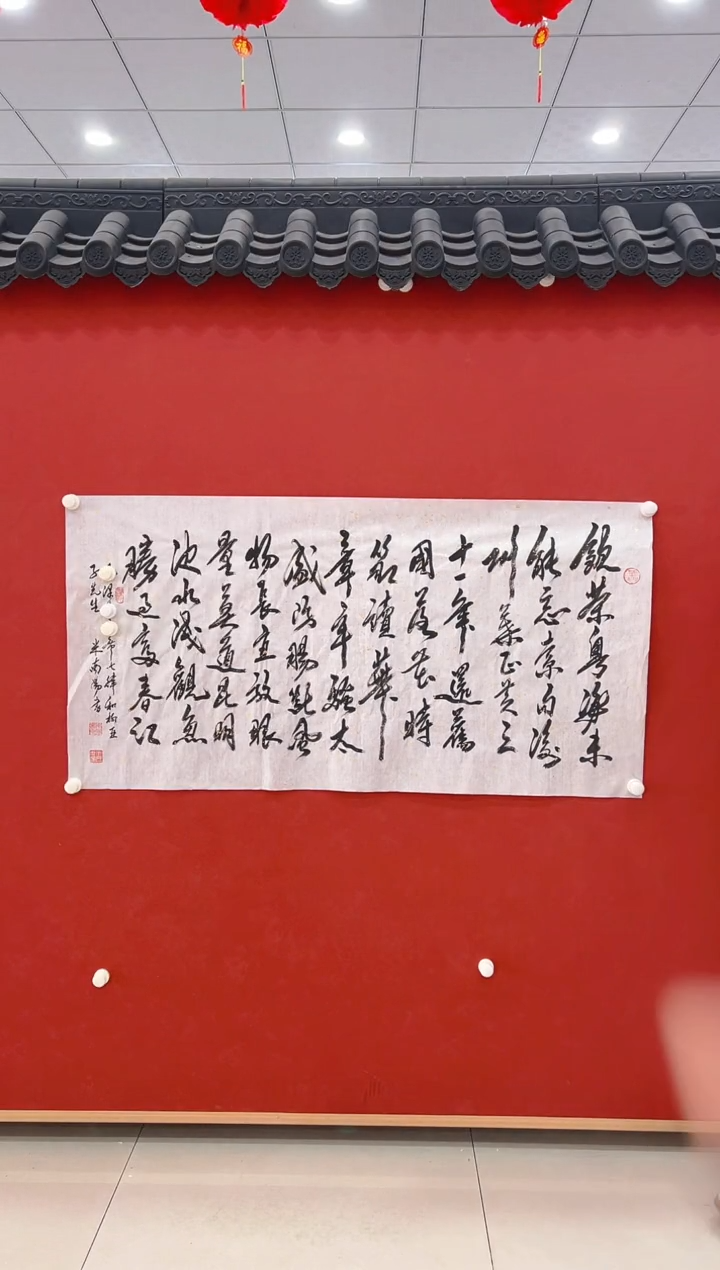 飲茶粤海未
能忘索句渝
州葉正黄三
十一年還舊
國落花時
節讀華
章牢騷太
盛防腸斷風
物長宜放眼
量莫道昆明
池水浅觀魚
勝過富春江
澤 七律和柳亞
子先生 米南陽書
福
福